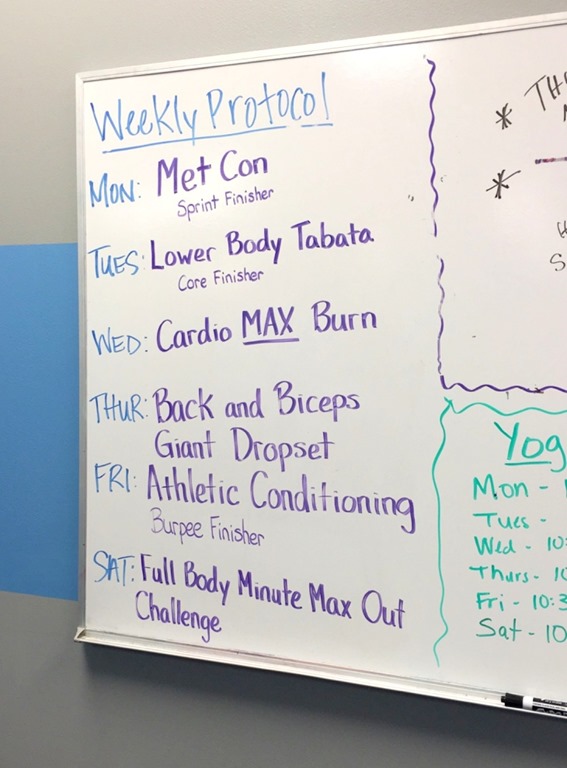 Weekly Protocol
MON: Met Con
Sprint Finisher
TUES: Lower Body Tabata
Core Finisher
WED: Cardio MAX Burn
THUR: Back and Biceps
Giant Dropset
FRI: Athletic Conditioning
Burpee Finisher
SAT: Full Body Minute Max Out
Challenge
*
*
Mon -
Tues -
Wed - 10:
Thurs - 10
Fri - 10:3
Sat - 10